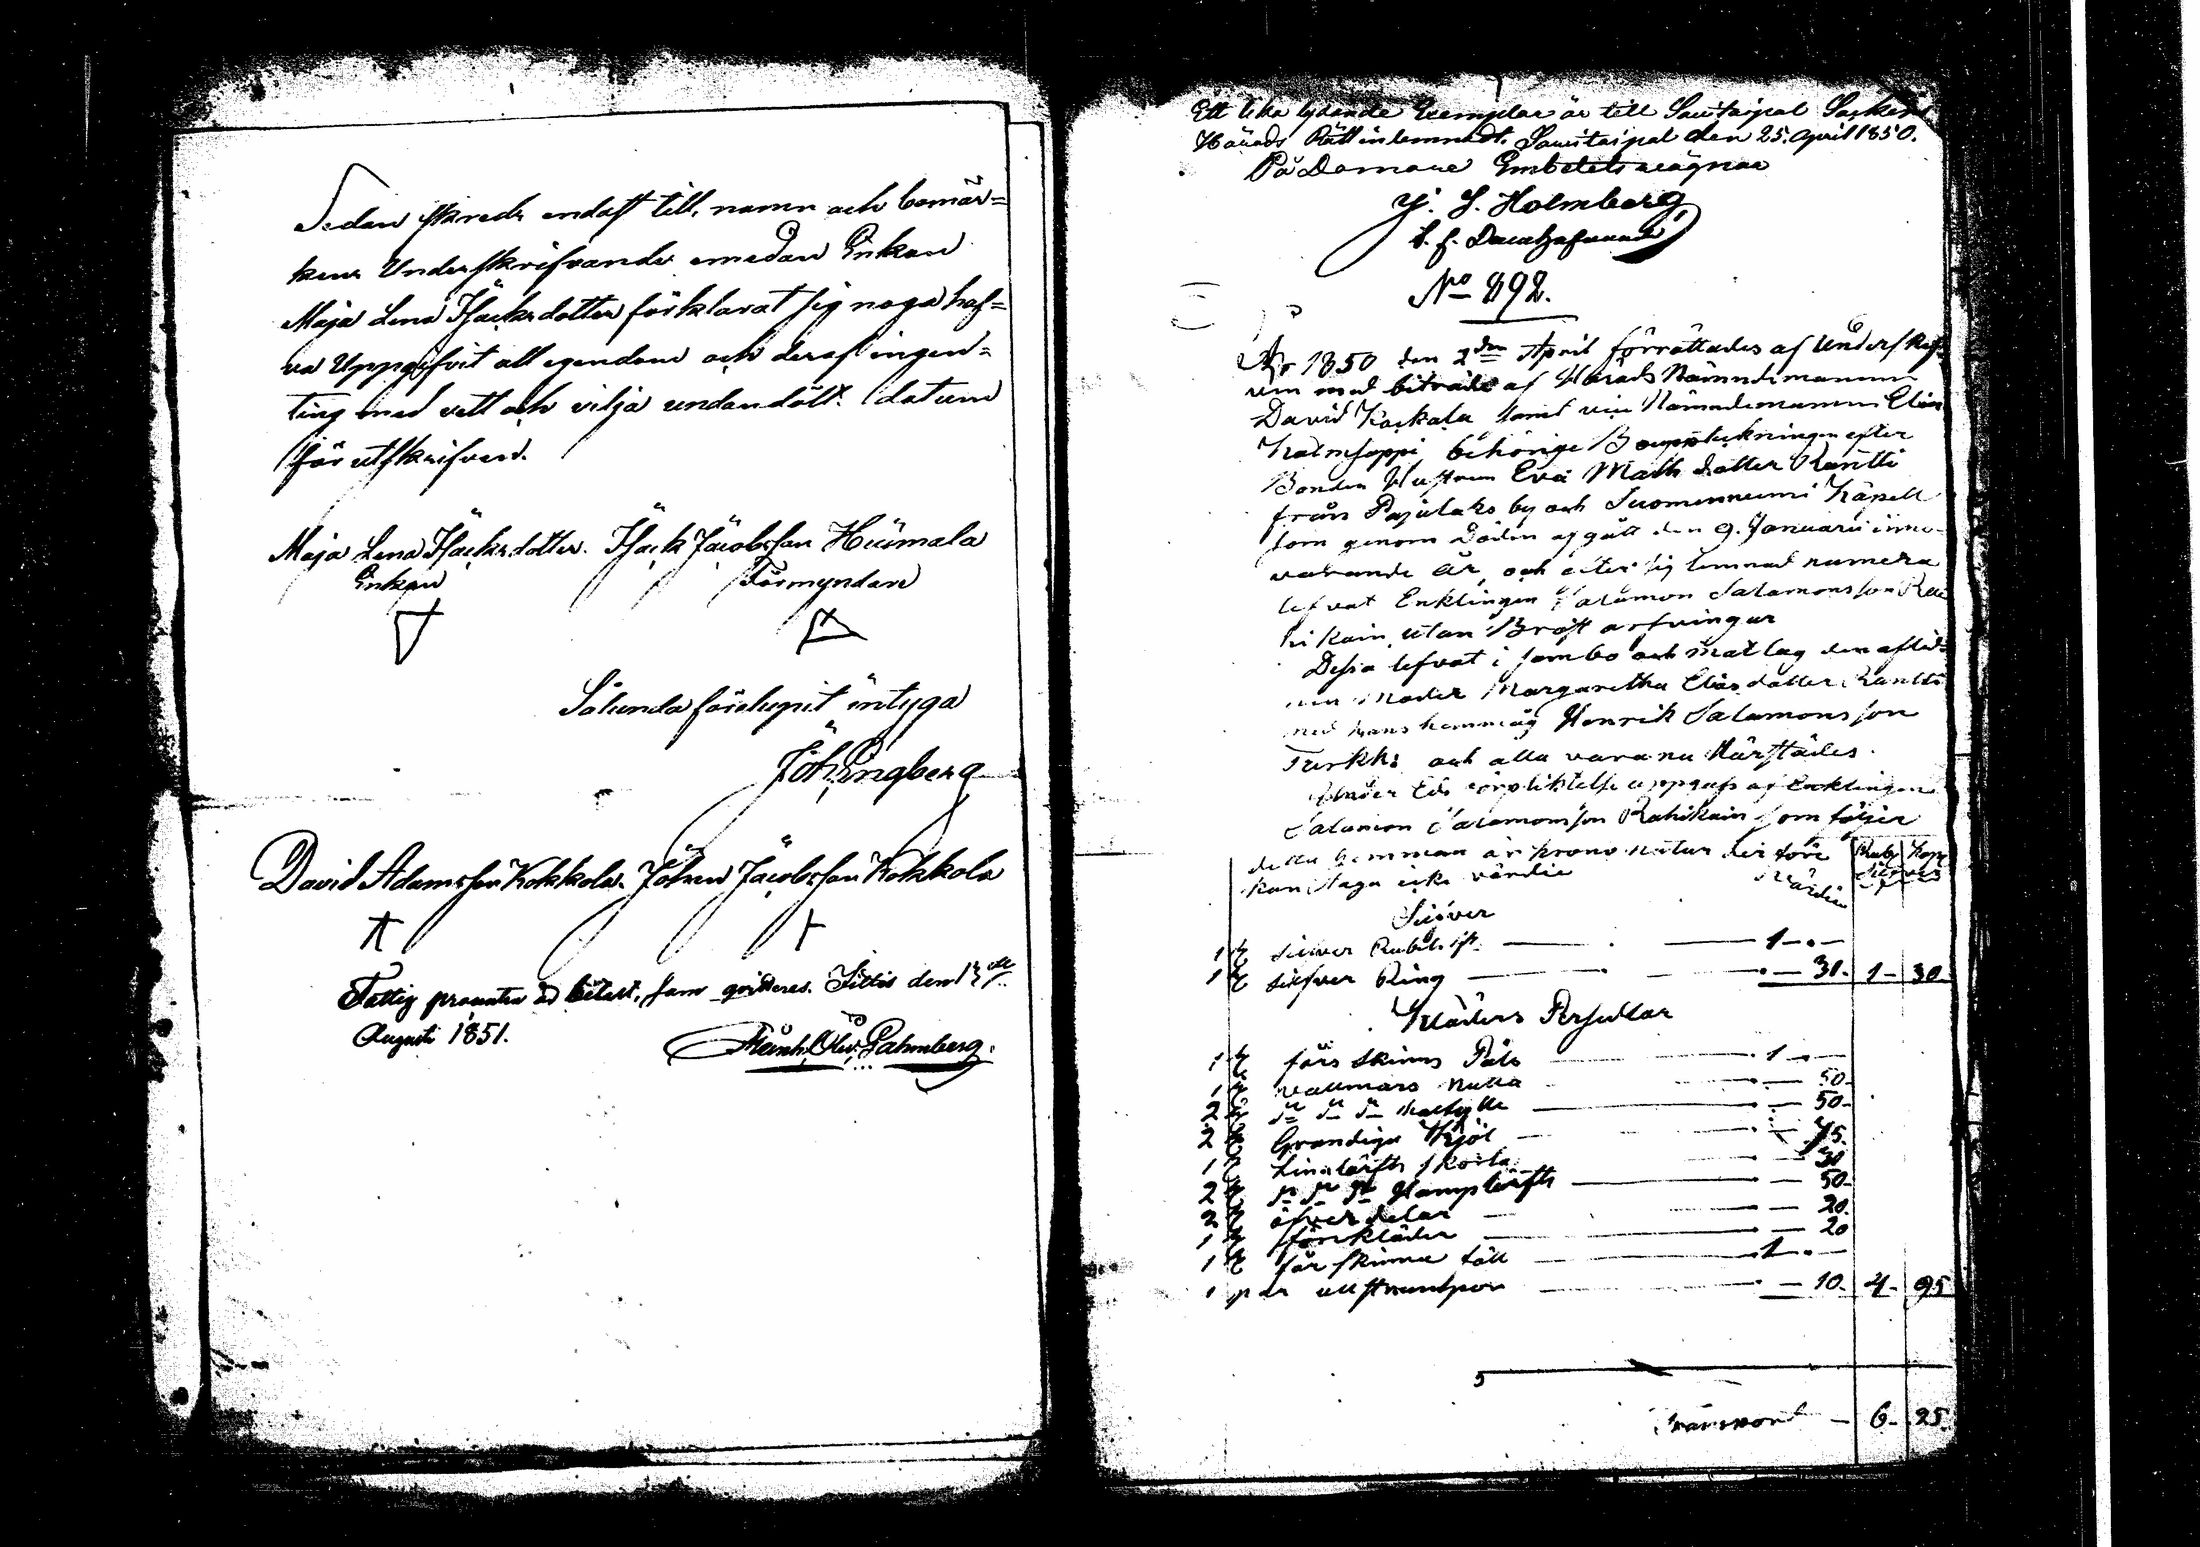 Sedan skreds endast till, namn och bomär=
kens Underskrifvande emedan Enkan
Maja Lena Isacksdotter förklarat sig noga haf=
va Uppgifvit all egendom och deraf ingen=
ting med vett och vilja undandölt. datum
för utskrifven.
Maja Lena Isacksdotter. Isack Jacobsson Huimala
Enkan Förmyndan
Sålunda förelupit intyga
Joh. Engberg
David Adamsson Kokkola. Johan Jacobsson Kokkola
Fattig procenten är betalt, som qvitteras. Sittis den 13de
Augusti 1851.
Ahlnberg.
Ett lika lydande Exemplar är till Savitaipal Sockens
Härads Rätt inlemnadt. Savitaipal den 25. April 1850.
På Domare Embetets vägnar
J. L. Holmberg
t. f. Domhafvande
No 892.
År 1850 den 2dra April förrättades af Underskrif
ven med biträde af Härads Nämndemannen
David Kockola samt vice Nämndemannen Elias
behörige Bouppteckningen efter
Bonden Hustrun Eva Math dotter Rantti
från Pajulaks by och Suomenniemi Kapell
som genom Döden afgått den 9. Januarii inne-
varande År, och efter sig lemnad numera
lefvat Enklingen Salamon Salamonsson Ra
hikain, utan Bröst arfvingar
Dessa lefvat i sambo och matlag den aflid=
nes Moder Margaretha Elias dotter Rantti
med hans hemmåg Henrik Salamonsson
Turkki och alla varanu Härstädes.
Under Eds förpliktelse uppgafs af Enklingen
Salamon Salamonsson Rahikain som följer
detta hemman är krono natur derföre
kan taga icke värdie Värdie
Rub Kop
Silver
Silver
1 st silver Rubelsst. 1 — . —
1 st silfver Ring . — 30. 1 - 30
Kläders Persedlar
1 st fårs skinns Päls 1 . —
1 st vallmars . — 50.
2 st dto dto dto . — 50.
2 st Grandiga Kjol . — 45.
1 st Linnlärfts skorta . — 30
2 st dto dto dto Hamplärfts . — 50.
2 st öfver delar . — 20.
1 st förkläder . — 20
1 st fårskinns fäll 1 . —
1 par . — 10. 4 - 95
Transport — 6 - 25